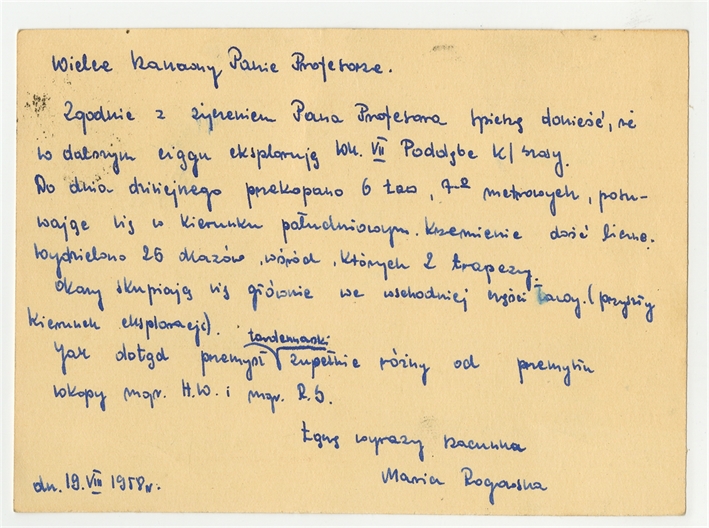 Wielce Szanowny Panie Profesorze.
Zgodnie z życzeniem Pana Profesora spieszę donieść, że
w dalszym ciągu eksploruję wk. VII Poddębe k/szosy.
Do dnia dzisiejszego przekopano 6 ław, metrowych, posu-
wając się w kierunku południowym. Krzemienie dość liczne.
Wydzielono 26 okazów, wśród, których 2 trapezy.
Okazy skupiają się głównie we wschodniej części ławy. (przyszły
kierunek eksploracji).
tardenuaski
Jak dotąd przemysł zupełnie różny od przemysłu
wkopy mgr. H.W. i mgr. R.S.
Łączę wyrazy szacunku
Maria
dn. 19. VIII 1958r.